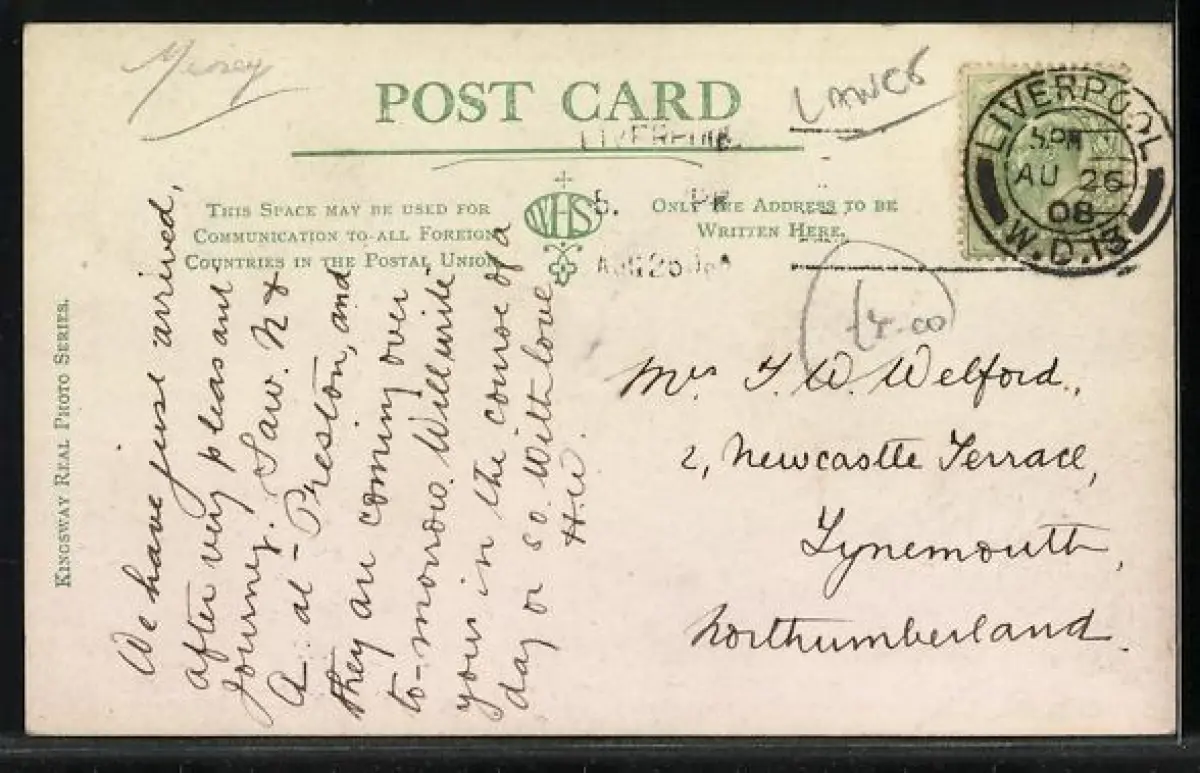 Mersey
POST CARD
LANCS
LIVERPOOL
5 PM
AU 26
08
W.D.13
LIVERPOOL.
5. PM
AUG 26 08
WHS
THIS SPACE MAY BE USED FOR
COMMUNICATION TO ALL FOREIGN
COUNTRIES IN THE POSTAL UNION
ONLY THE ADDRESS TO BE
WRITTEN HERE.
KINGSWAY REAL PHOTO SERIES.
We have just arrived,
after very pleasant
journey. Saw. N &
A. at Preston, and
they are coming over
to-morrow. Will write
you in the course of a
day or so. With love
H.W.
£4.00
Mrs T. W. Welford.,
2, Newcastle Terrace,
Tynemouth,
Northumberland.